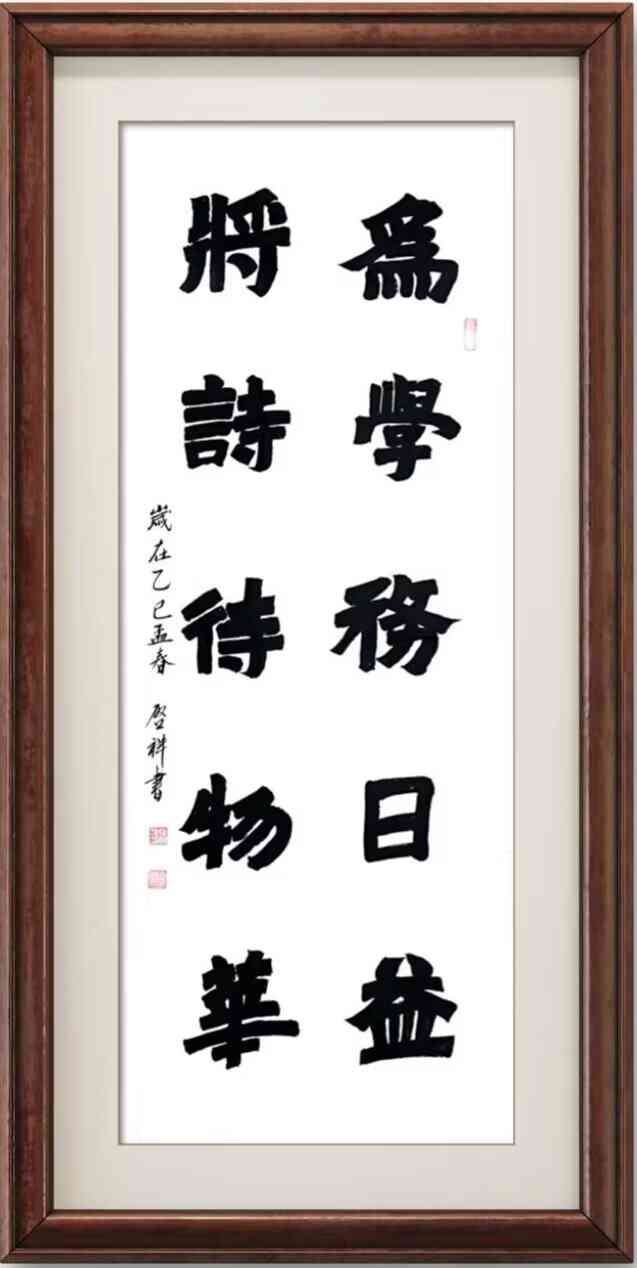 為學務日益
將詩待物華
歲在乙巳孟春 啓祥書